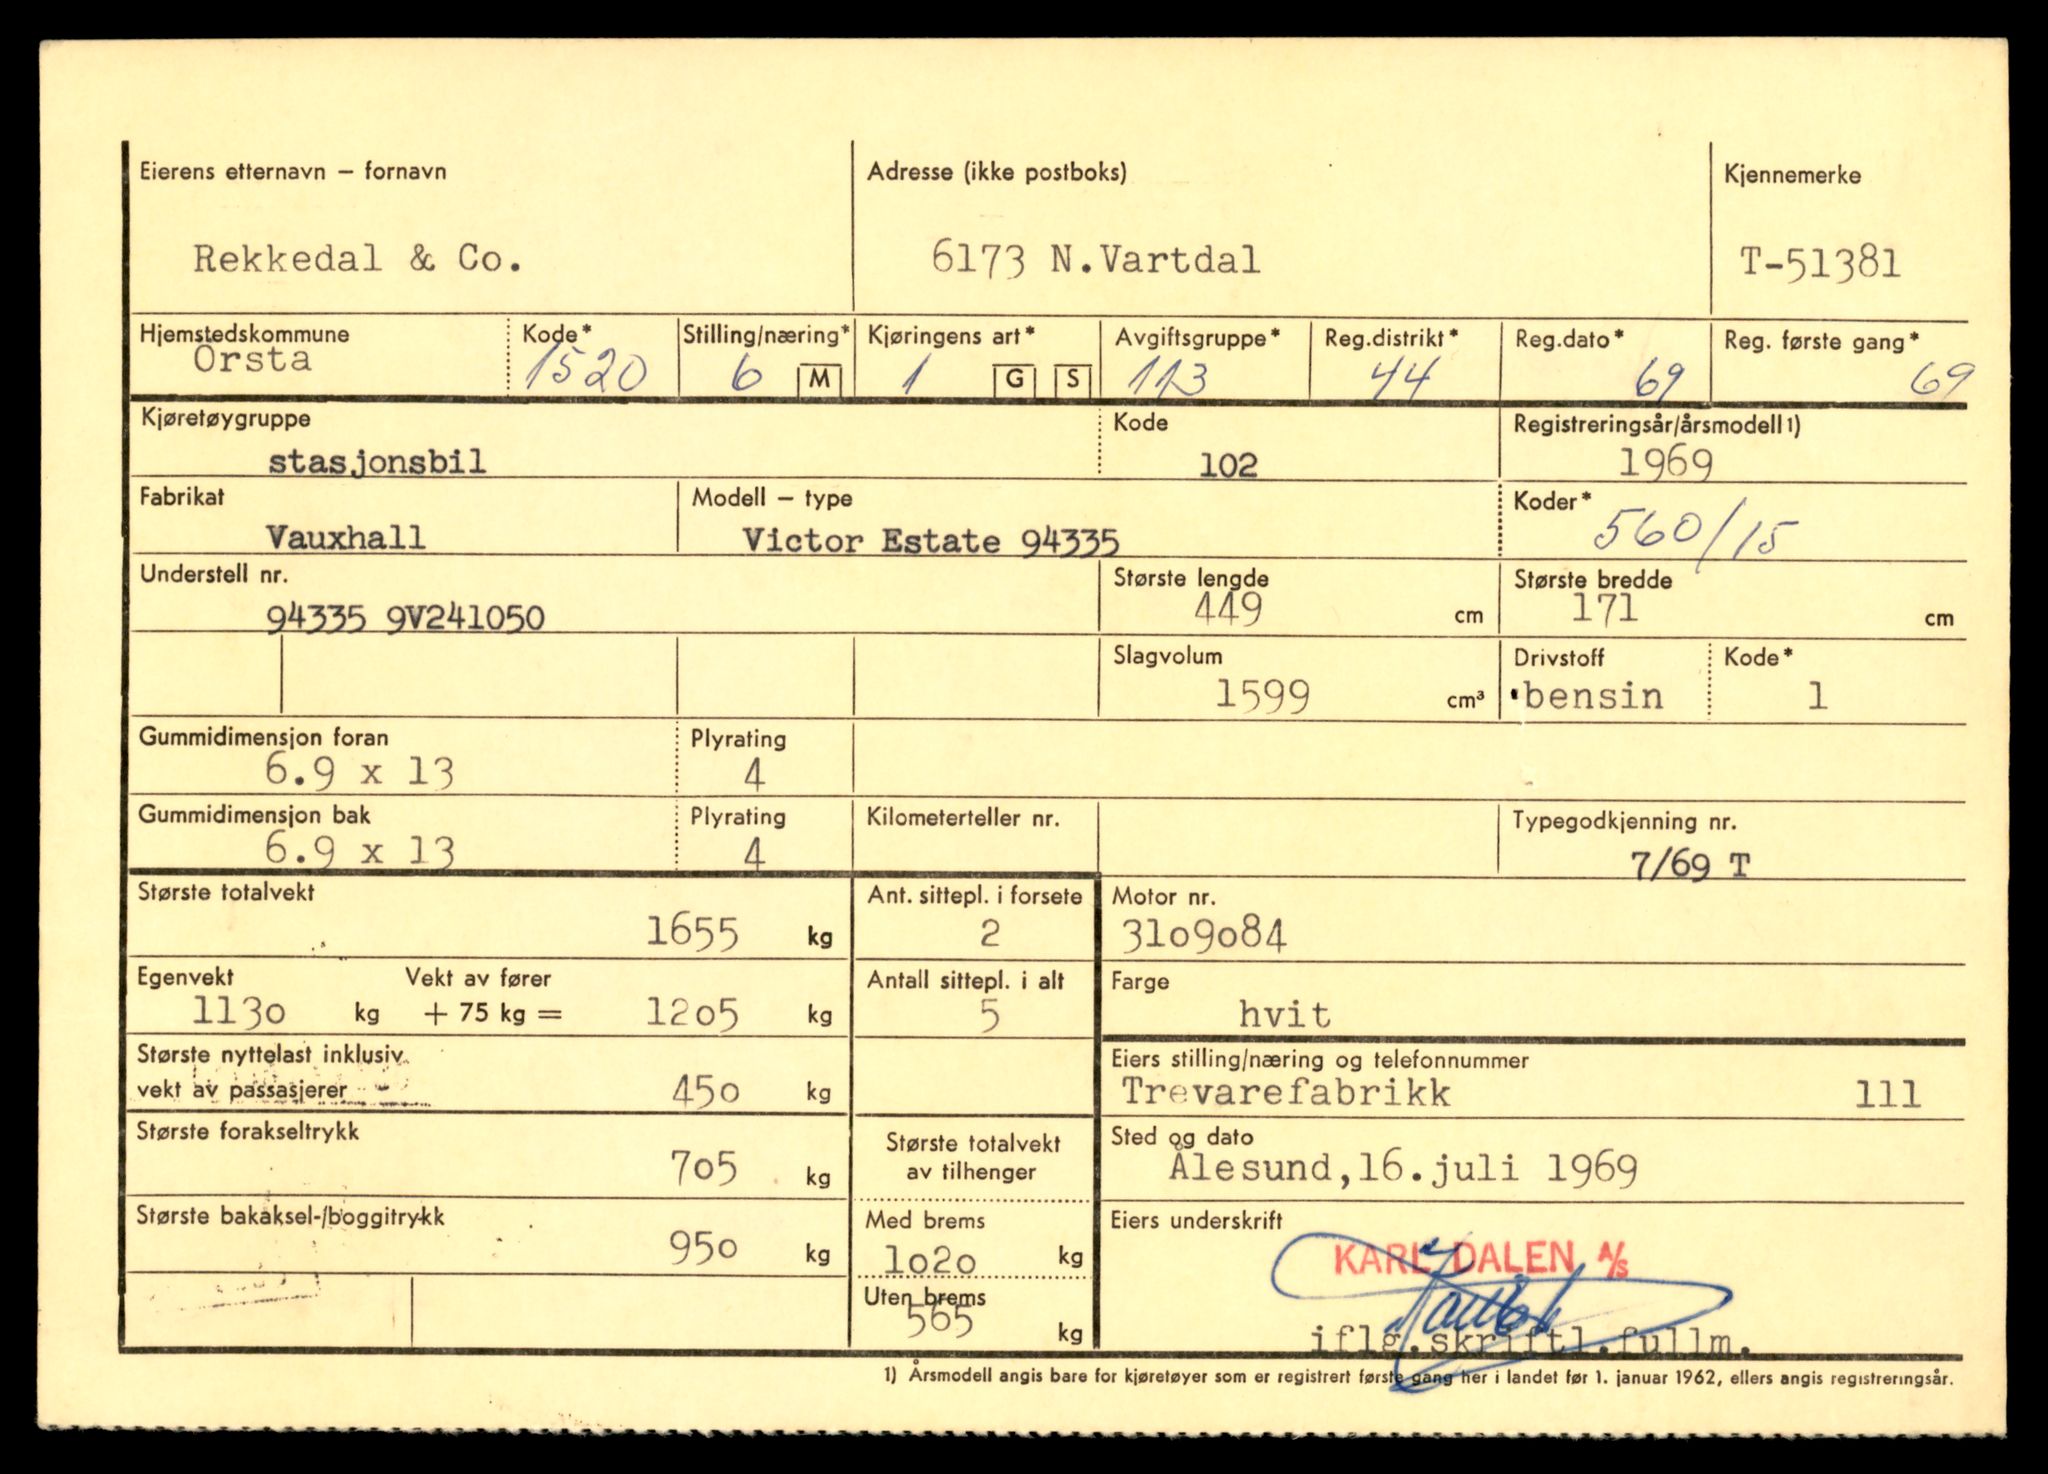 Eierens etternavn – fornavn
Adresse (ikke postboks)
Kjennemerke
Rekkedal & Co.
6173 N.Vartdal
T-51381
Hjemstedskommune
Kode*
Stilling/næring*
Kjøringens art*
Avgiftsgruppe*
Reg.distrikt*
Reg.dato*
Reg. første gang*
Örsta
1520
6 M
1 G S
113
44
69
69
Kjøretøygruppe
Kode
Registreringsår/årsmodell1)
stasjonsbil
102
1969
Fabrikat
Modell – type
Koder*
Vauxhall
Victor Estate 94335
560/15
Understell nr.
Største lengde
Største bredde
94335 9V241050
449 cm
171 cm
Slagvolum
Drivstoff
Kode*
1599 cm³
bensin
1
Gummidimensjon foran
Plyrating
6.9 x 13
4
Gummidimensjon bak
Plyrating
Kilometerteller nr.
Typegodkjenning nr.
6.9 x 13
4
7/69 T
Største totalvekt
Ant. sittepl. i forsete
Motor nr.
1655 kg
2
3109084
Egenvekt
Vekt av fører
Antall sittepl. i alt
Farge
1130 kg + 75 kg = 1205 kg
5
hvit
Største nyttelast inklusiv
vekt av passasjerer
450 kg
Eiers stilling/næring og telefonnummer
Trevarefabrikk 111
Største forakseltrykk
705 kg
Største totalvekt
av tilhenger
Sted og dato
Ålesund,16.juli 1969
Største bakaksel-/boggitrykk
950 kg
Med brems
1020 kg
Uten brems
565 kg
Eiers underskrift
KARL DALEN A/S
iflg.skriftl.fullm.
1) Årsmodell angis bare for kjøretøyer som er registrert første gang her i landet før 1. januar 1962, ellers angis registreringsår.